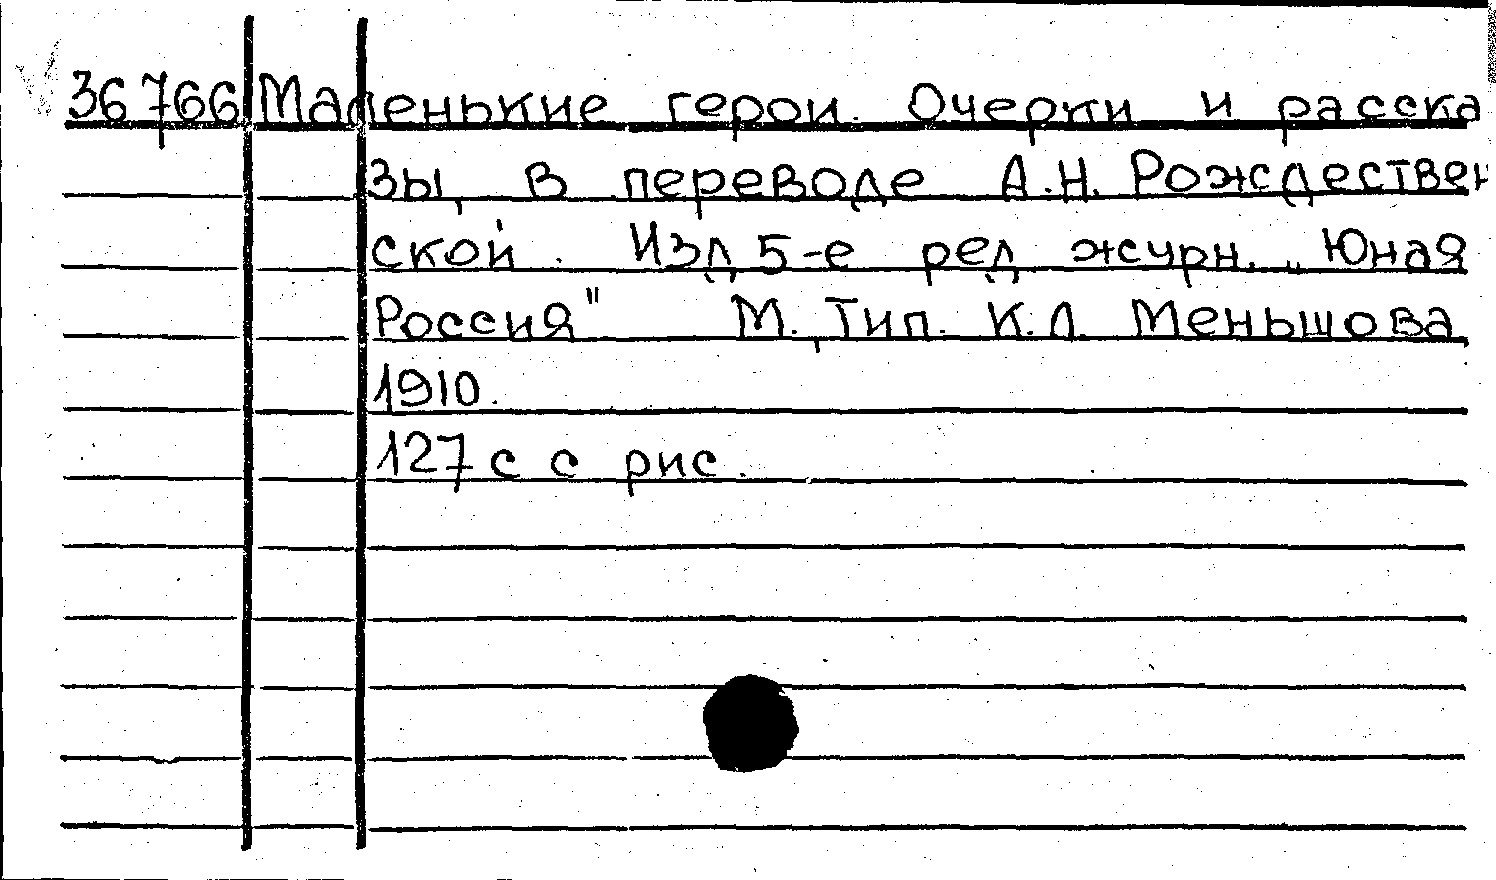 36766 Маленькие герои. Очерки и расска
зы, в переводе А.Н. Рождествен
ской. Изд. 5-е ред. журн. „Юная
Россия" М. Тип. К.Л. Меньшова,
1910.
127 с с рис.